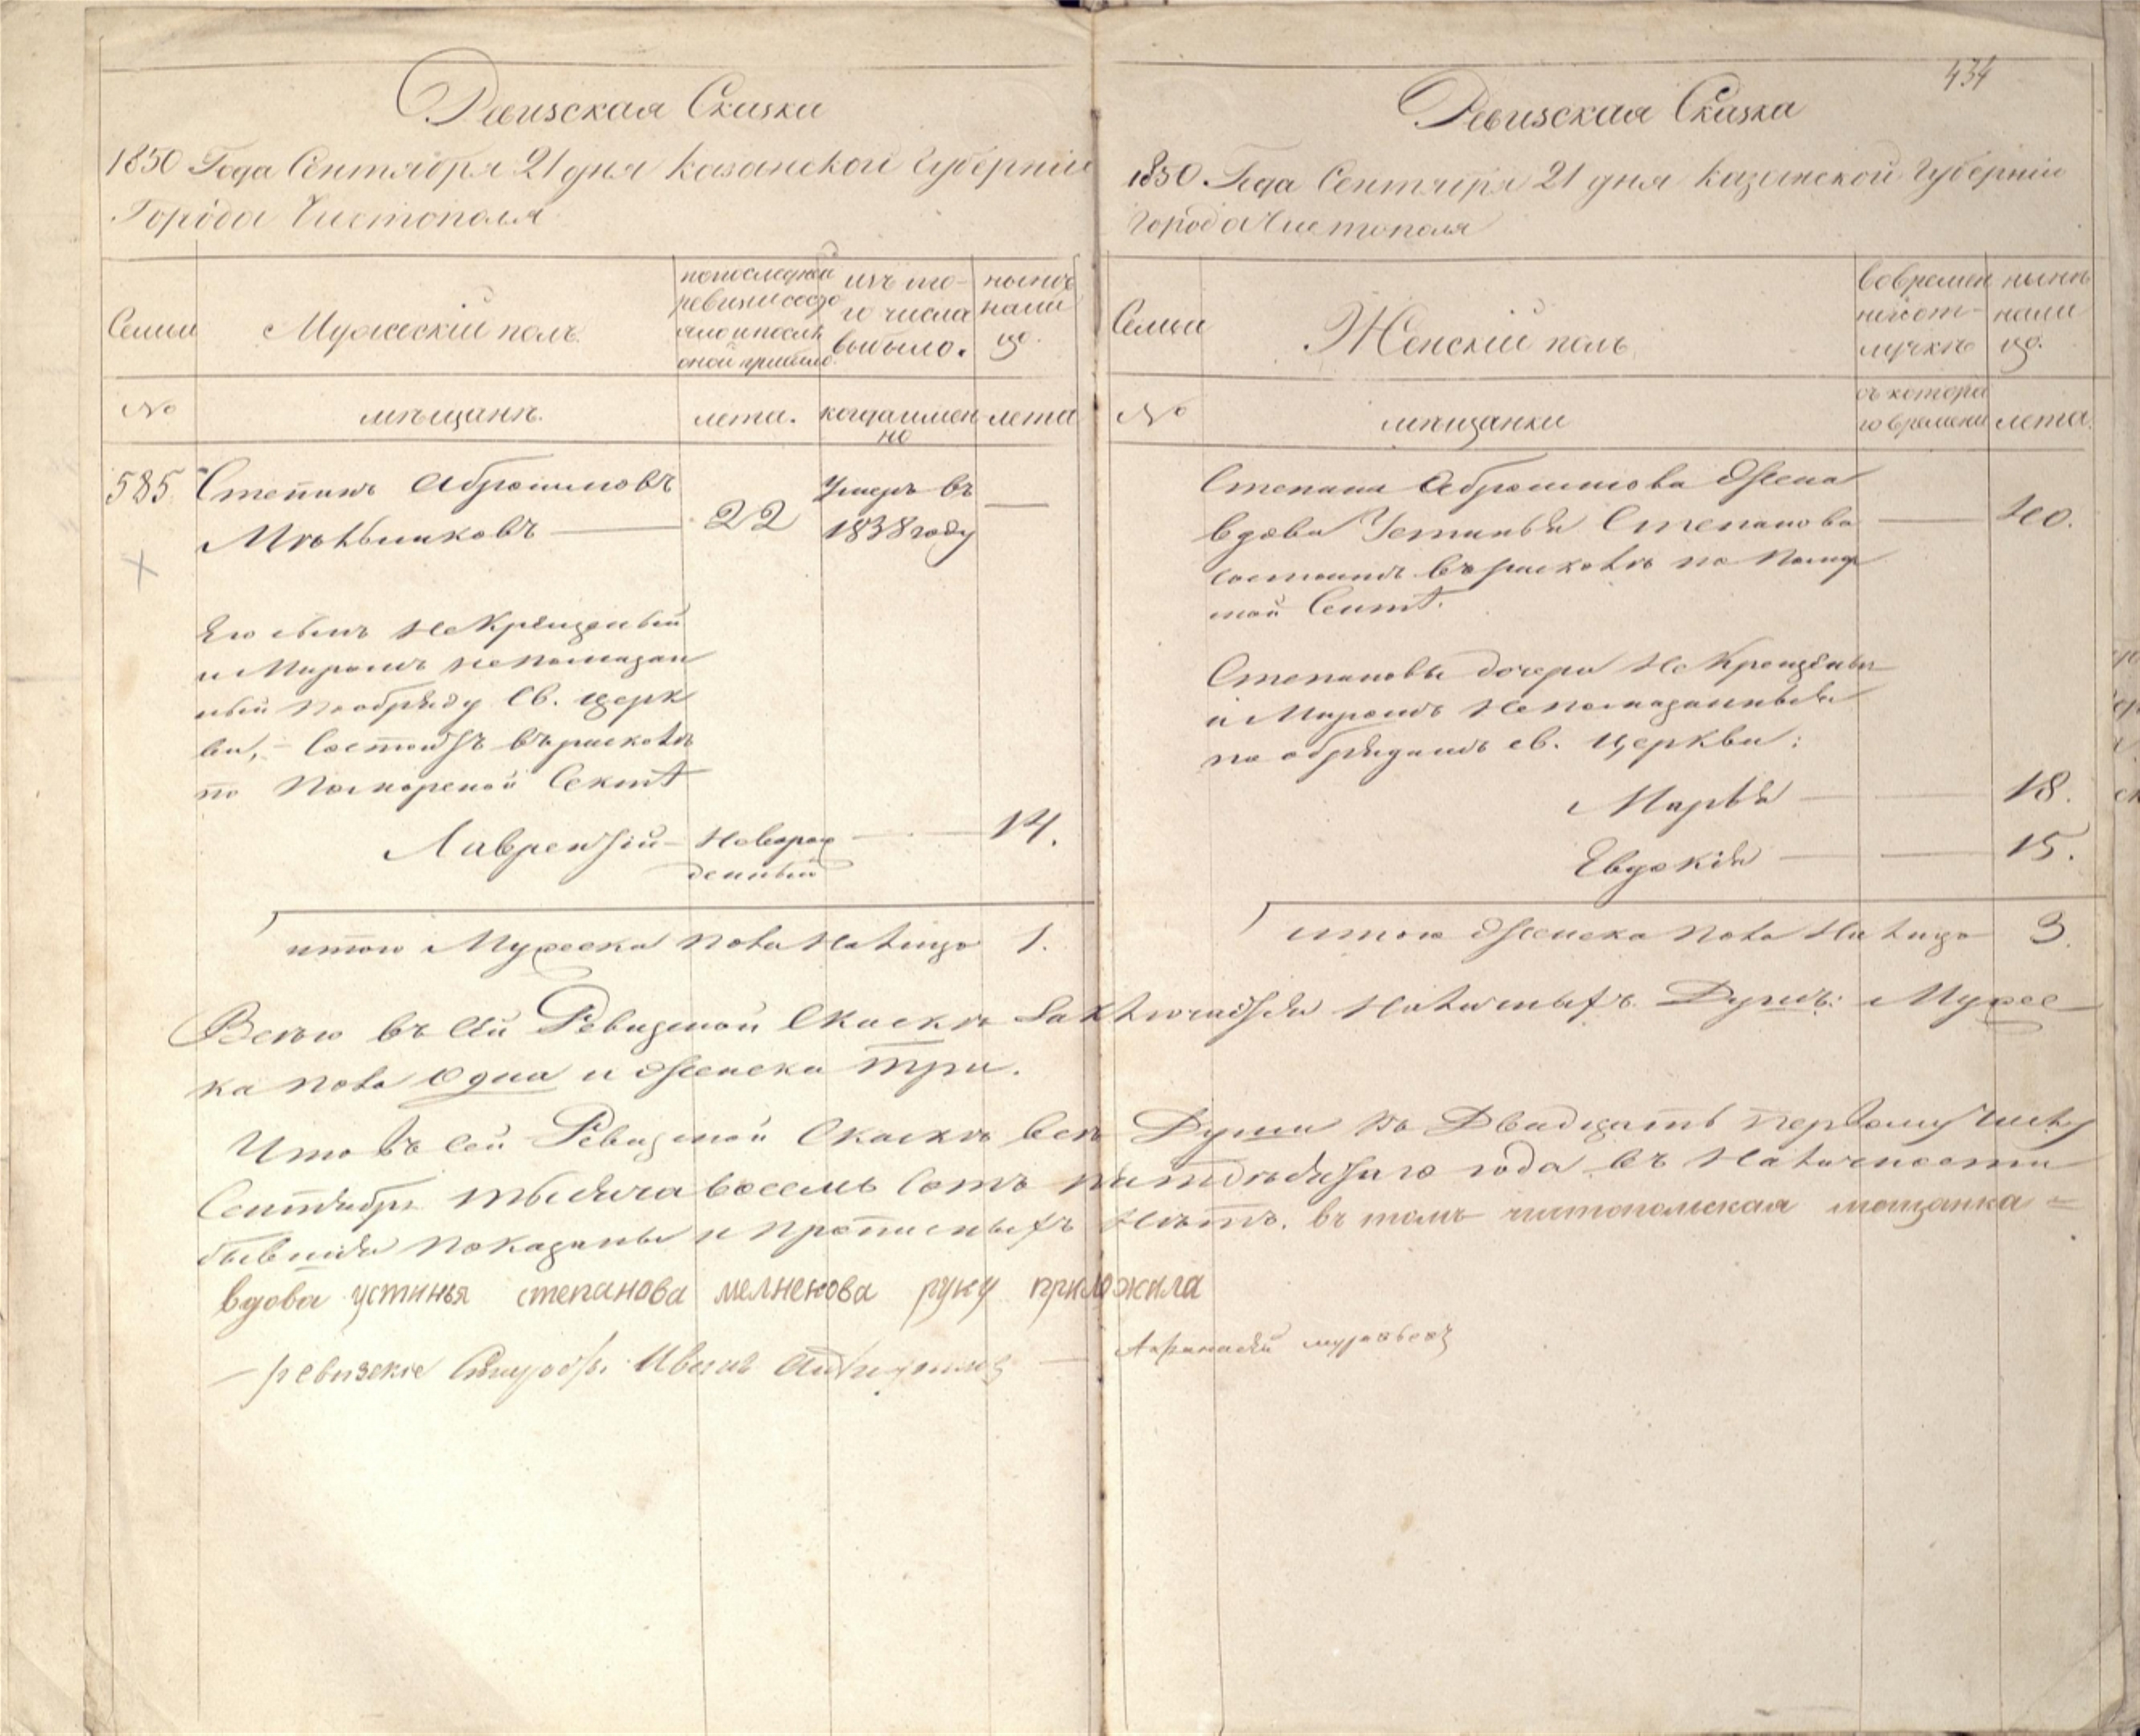 Ревизская Сказка
1850 Года Сентября 21 дня Казанской Губерніи
Города Чистополя
Семьи
Мужескій полъ
по последней
ревизіи состо
яло и послѣ
оной прибыло
изъ то-
го числа
выбыло.
нынѣ
нали
цо.
№
мѣщанѣ.
лета.
когда имен
но
лета
585
Степанъ Абрамовъ
Мѣльниковъ
22
Умеръ въ
1838 году
Его сынъ Не Крещеный
и Миромъ не помазан
ный по обряду Св. Церк
ви, – Состоитъ въ расколѣ
по Поморской Сектѣ
Лаврентій – Новорож
денный
14.
итого Мужеска пола На лицо 1.
434
Ревизская Сказка
1850 Года Сентября 21 дня Казанской Губерніи
Города Чистополя
Семьи
Женскій полъ
во времен
ной от-
лучкѣ
нынѣ
нали
цо.
№
мѣщанки
съ котора
го времени
лета.
Степана Абрамова Жена
вдова Устинья Степанова
40.
состоитъ въ расколѣ по Помор
ской Сектѣ.
Степановы дочери Не Крещёныя
и Миромъ Не помазанныя
по обрядамъ св. Церкви:
Марья 18.
Евдокія 15.
итого Женска пола На лицо 3.
Всего въ сей Ревизской Сказкѣ Заключается Наличныхъ Душъ: Мужес
ка пола Одна и Женска три.
Что въ сей Ревизской Сказкѣ всѣ Души по Двадцать первому числу
Сентября тысяча восемь сотъ пятидесятаго года въ Наличности
бывшія показаны и прописныхъ Нѣтъ. въ томъ чистополская мещанка =
вдова устинья степанова мелнекова руку приложила
– ревизские Иванъ
Афанасей